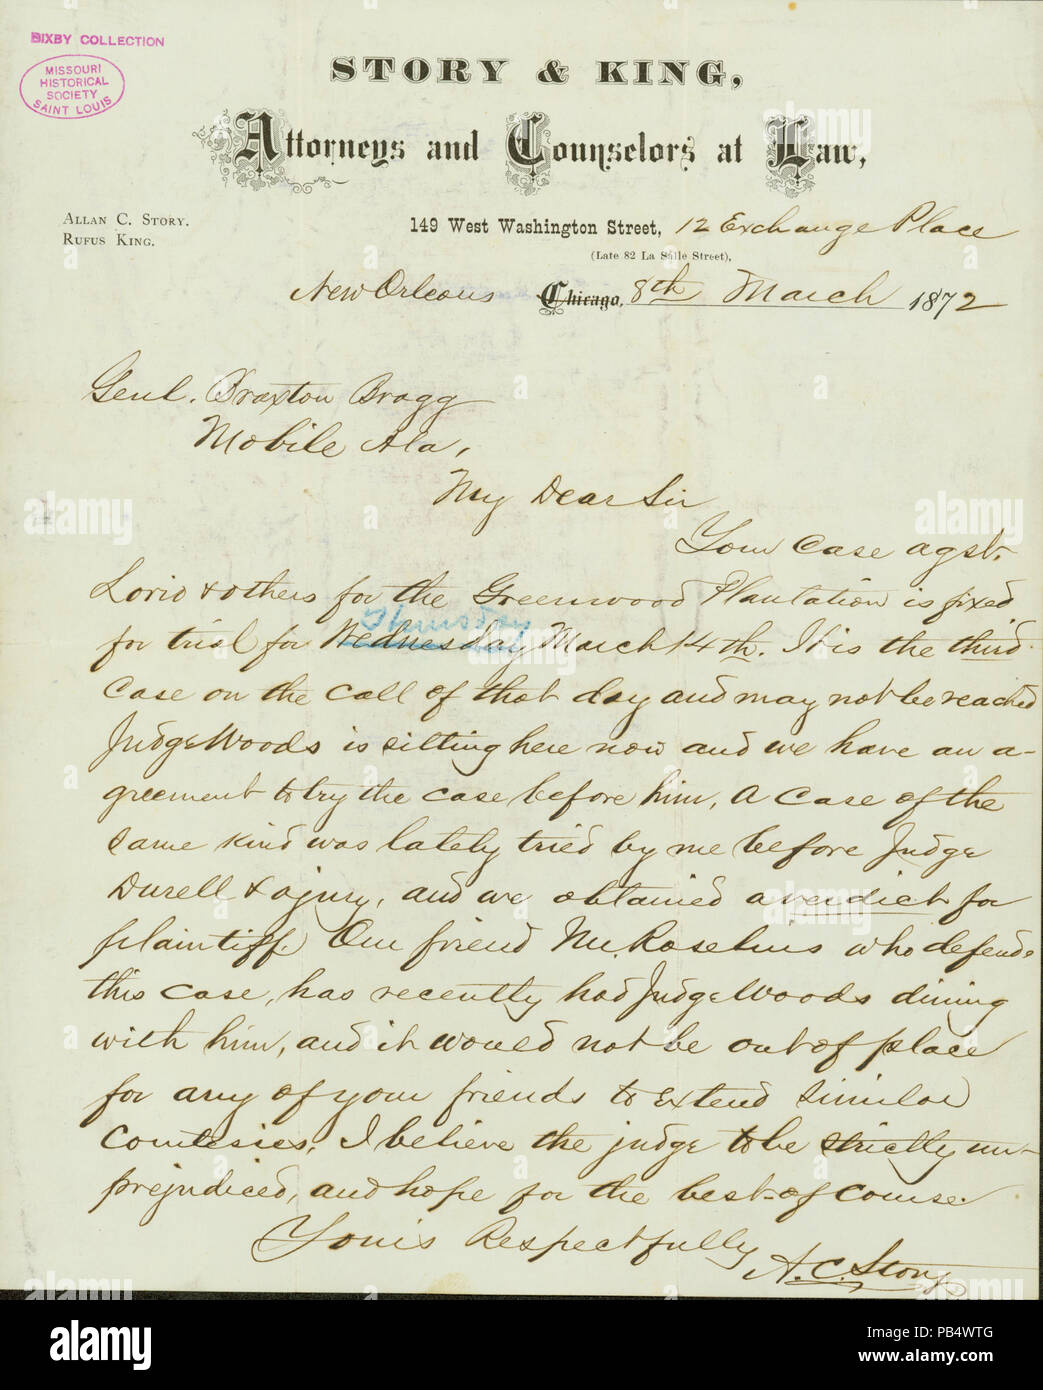 BIXBY COLLECTION
MISSOURI
HISTORICAL
SOCIETY
SAINT LOUIS
STORY & KING,
Attorneys and Counselors at Law,
ALLAN C. STORY.
RUFUS KING.
149 West Washington Street, 12 Exchange Place
(Late 82 La Salle Street),
New Orleans Chicago, 8th March 1872
Genl. Braxton Bragg
Mobile Ala,
My Dear Sir
Your Case agst.
Lorio & others for the Greenwood Plantation is fixed
Thursday
for trial for Wednesday March 14th. It is the third
Case on the call of that day and may not be reached
Judge Woods is sitting here now and we have an a-
greement to try the case before him, A Case of the
same kind was lately tried by me before Judge
Durell & a jury, and we obtained a verdict for
plaintiff. Our friend Mr. Roselius who defends
this case, has recently had Judge Woods dining
with him, and it would not be out of place
for any of your friends to extend similar
Courtesies, I believe the judge to be strictly un-
prejudiced, and hope for the best of course
Yours Respectfully
A. C. Story
alamy
PB4WTG
www.alamy.com